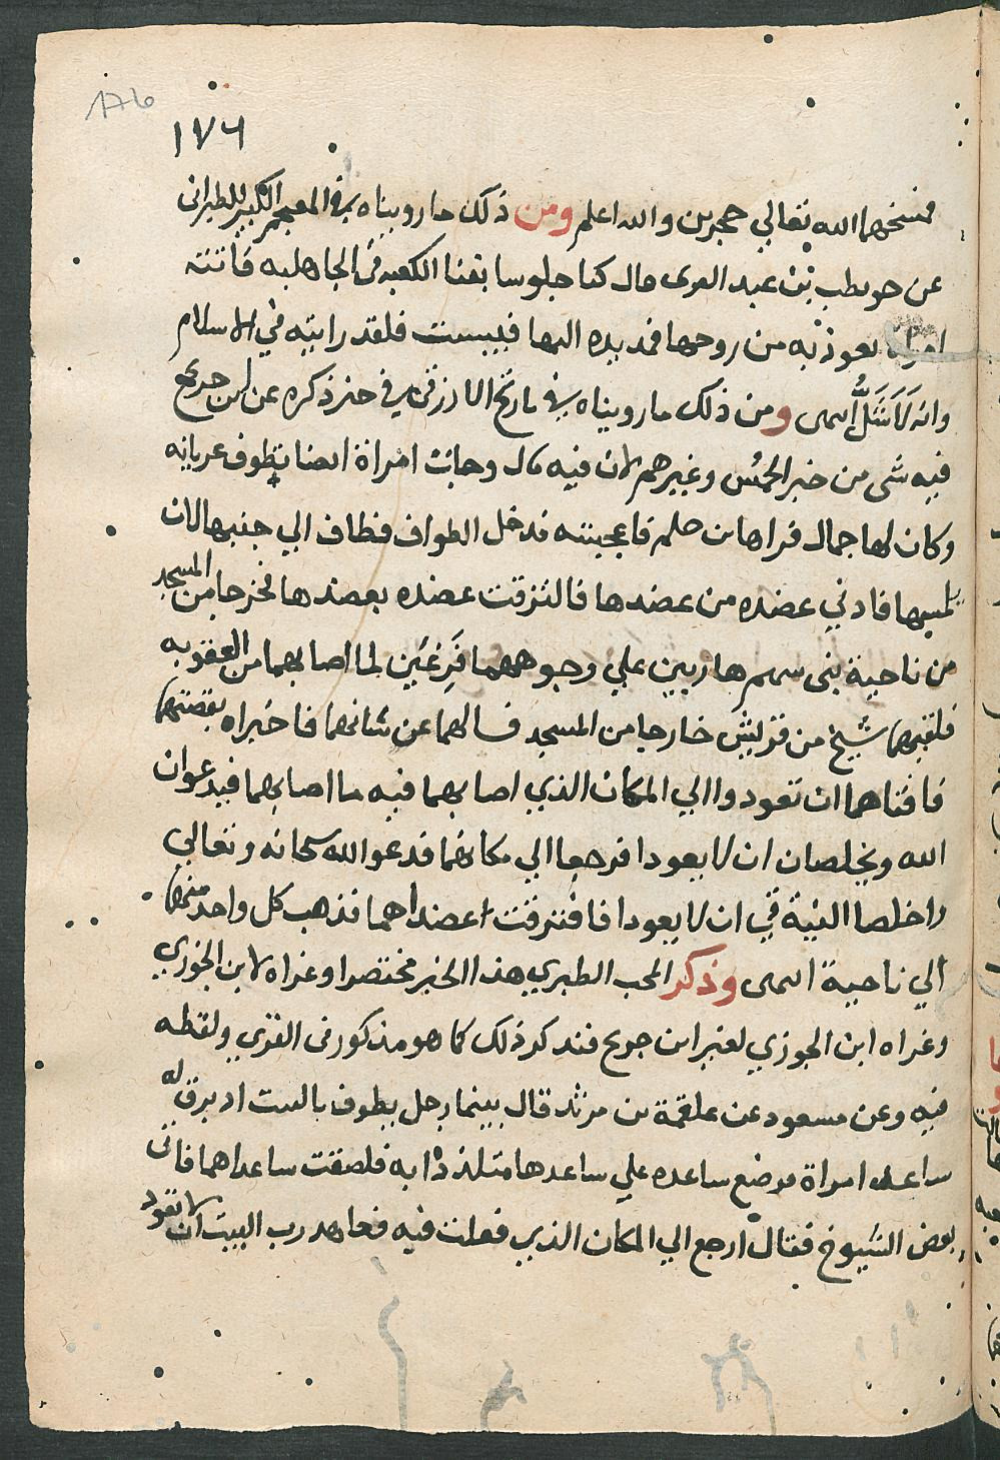 ١٧٦
فمسخهما الله تعالي حجرين والله اعلم ومن ذلك ما رويناه في المعجم الكبير للطبراني
عن حويطب بن عبد العزى قال كنا جلوسا بفنا الكعبة في الجاهلية فاتته
امراة تعوذ به من زوجها فمد يده اليها فيبست فلقد رايته في الاسلام
وانه لاَشَلُّ انتهى ومن ذلك ما رويناه في تاريخ الازرقي في خبر ذكره عن ابن جريج
فيه شى من خبر الحمُس وغيرهم لان فيه قال وجات امراة ايضا تطوف عريانه
وكان لها جمال فراها رجل فاعجبته فدخل الطواف فطاف الي جنبها لان
يمسها فادني عضده من عضدها فالتزقت عضده بعضدها فخرجا من المسجد
من ناحية بنى سهم هاربين علي وجوههما فَزِعَين لما اصابهما من العقوبه
فلقيهما شيخ من قريش خارجا من المسجد فسالهما عن شانهما فاخبراه بقصتهما
فافتاهما ان تعودوا الي المكان الذي اصابهما فيه ما اصابهما فيدعوان
الله ويخلصان ان لا يعودا فرجعا الي مكانهما فدعوا الله سبحانه وتعالي
واخلصا النية في ان لا يعودا فافتزقت اعضداهما فذهب كل واحد منهما
الي ناحية انتهى وذكر المحب الطبري هذا الخبر مختصرا وعزاه لابن الجوزي
وعزاه ابن الجوزي لغير ابن جريج فتذكر ذلك كما هو مذكور في القرى ولفظه
فيه وعن مسعود عن علقمة بن مرثد قال بينما رجل يطوف بالبيت اذ برق له
ساعد امراة فوضع ساعده علي ساعدها متلذذا به فلصقت ساعداهما فاتى
بعض الشيوخ فقال ارجع الي المكان الذي فعلت فيه فعاهد رب البيت ان لا تعود